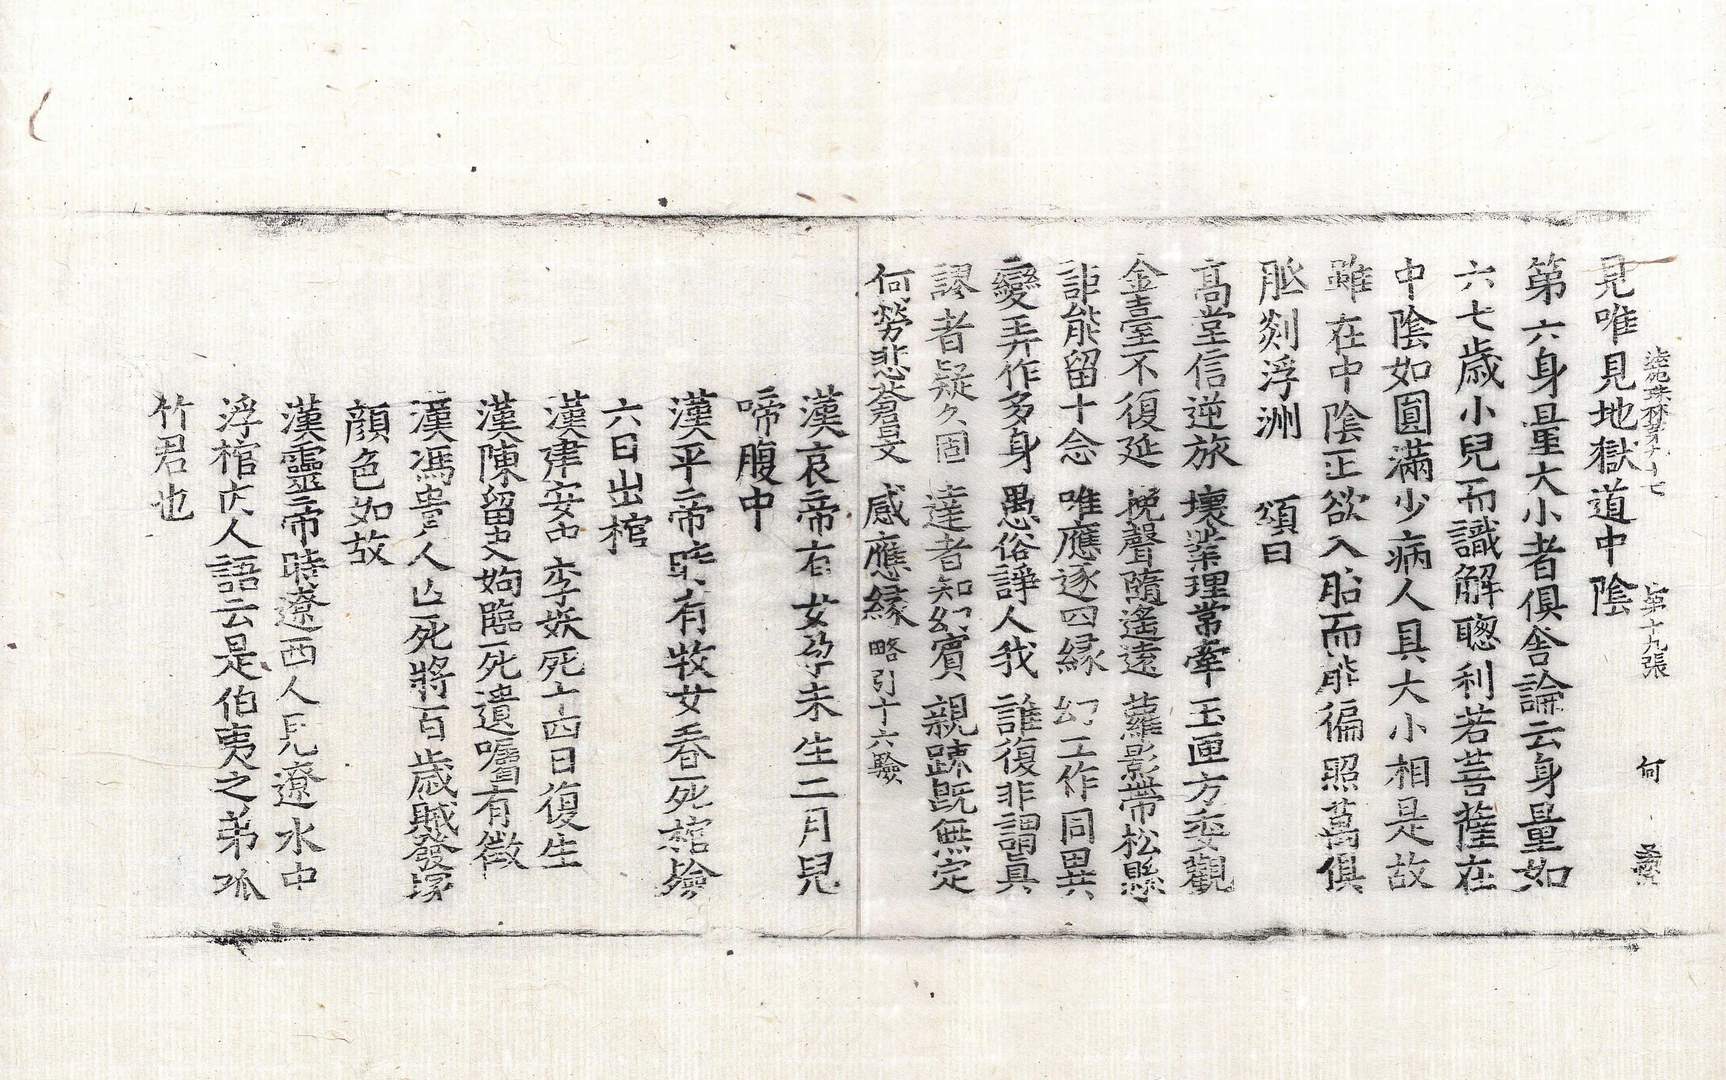 法苑珠林第九十七　第十九張　何
見唯見地獄道中陰
第六身量大小者俱舍論云身量如
六七歲小兒而識解聰利若菩薩在
中陰如圓滿少病人具大小相是故
雖在中陰正欲入胎而能徧照萬俱
胝剡浮洲　頌曰
高堂信逆旅　壞業理常牽　玉匣方委觀
金臺不復延　挽聲隨遙遠　蘿影帶松懸
詎能留十念　唯應逐四緣　幻工作同異
變弄作多身　愚俗諍人我　誰復非謂眞
謬者疑久固　達者知幻賓　親踈旣無定
何勞悲蒼旻　感應緣略引十六驗
漢哀帝有女孕未生二月兒
啼腹中
漢平帝時有牧女春死棺殮
六日出棺
漢建安中李妖死十四日復生
漢陳留史姁臨死遺囑有徵
漢馮貴人亡死將百歲賊發塚
顔色如故
漢靈帝時遼西人見遼水中
浮棺内人語云是伯夷之弟孤
竹君也